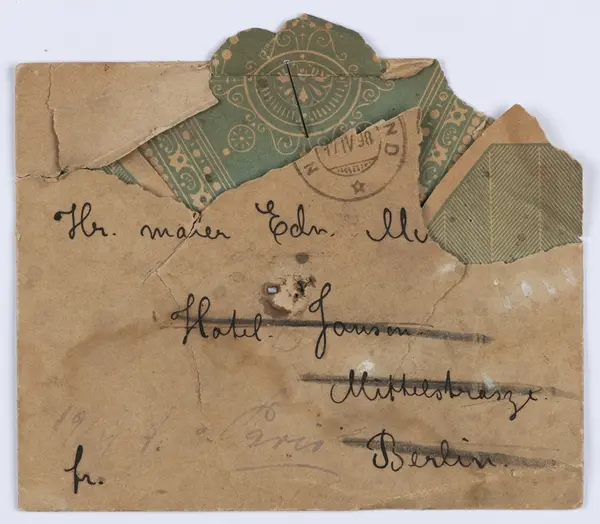 Hr. maler Edv. M
Hotel. Janson.
Mittelstrasze.
Berlin.
fr.